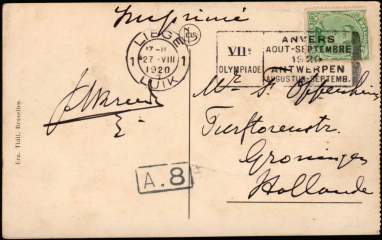 Imprimé
LIEGE
1
17-18
27-VIII
1920
1
LUIK
VIIe
OLYMPIADE
ANVERS
AOUT-SEPTEMBRE
1920
ANTWERPEN
AUGUSTUS-SEPTEMB.
Mr S. Oppenheim
Groningen
Hollande
A.8
Ern. Thill, Bruxelles.